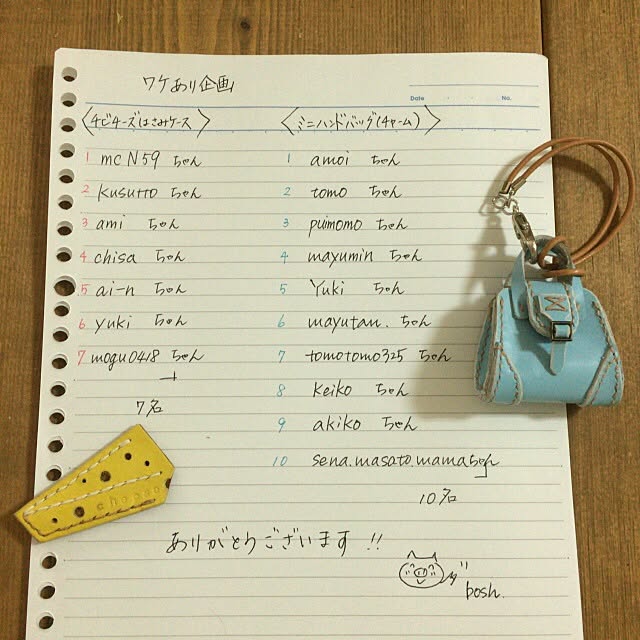 ワケあり企画
Date ・ ・ No.
〈チビチーズはさみケース〉
1 mcN59 ちゃん
2 kusutto ちゃん
3 ami ちゃん
4 chisa ちゃん
5 ai-n ちゃん
6 yuki ちゃん
7 mogu0418 ちゃん
7名
〈ミニハンドバッグ(チャーム)〉
1 amoi ちゃん
2 tomo ちゃん
3 puimomo ちゃん
4 mayumin ちゃん
5 Yuki ちゃん
6 mayutan. ちゃん
7 tomotomo325 ちゃん
8 keiko ちゃん
9 akiko ちゃん
10 sena.masato.mamaちゃん
10名
ありがとうございます!!
bosh.